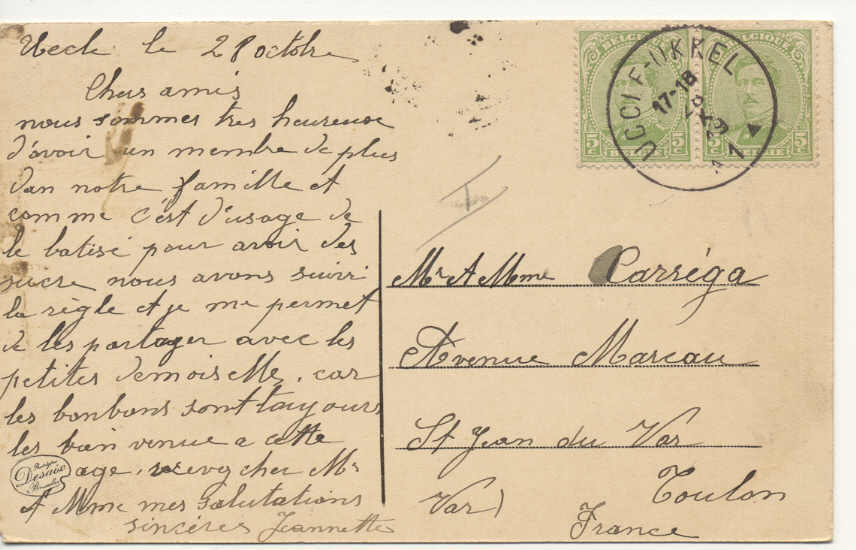 Uccle le 28 octobre
Chers amis
nous sommes tres heureuse
d'avoir un membre de plus
dan notre famille et
comme c'est d'usage de
le batisé pour avoir des
sucre nous avons suivri
la règle et je me permet
de les partager avec les
petites demoiselle, car
les bonbons sont toujours
les bien venue a cette
age, recevez cher Mr
et Mme mes salutations
sincères Jeannette
Desaix
BELGIQUE
5 5
BELGIQUE
5 5
UCCLE-UKKEL
17-18
1
Mr et Mme Carréga
Avenue Marceau
St Jean du Var
Toulon
Var)
France